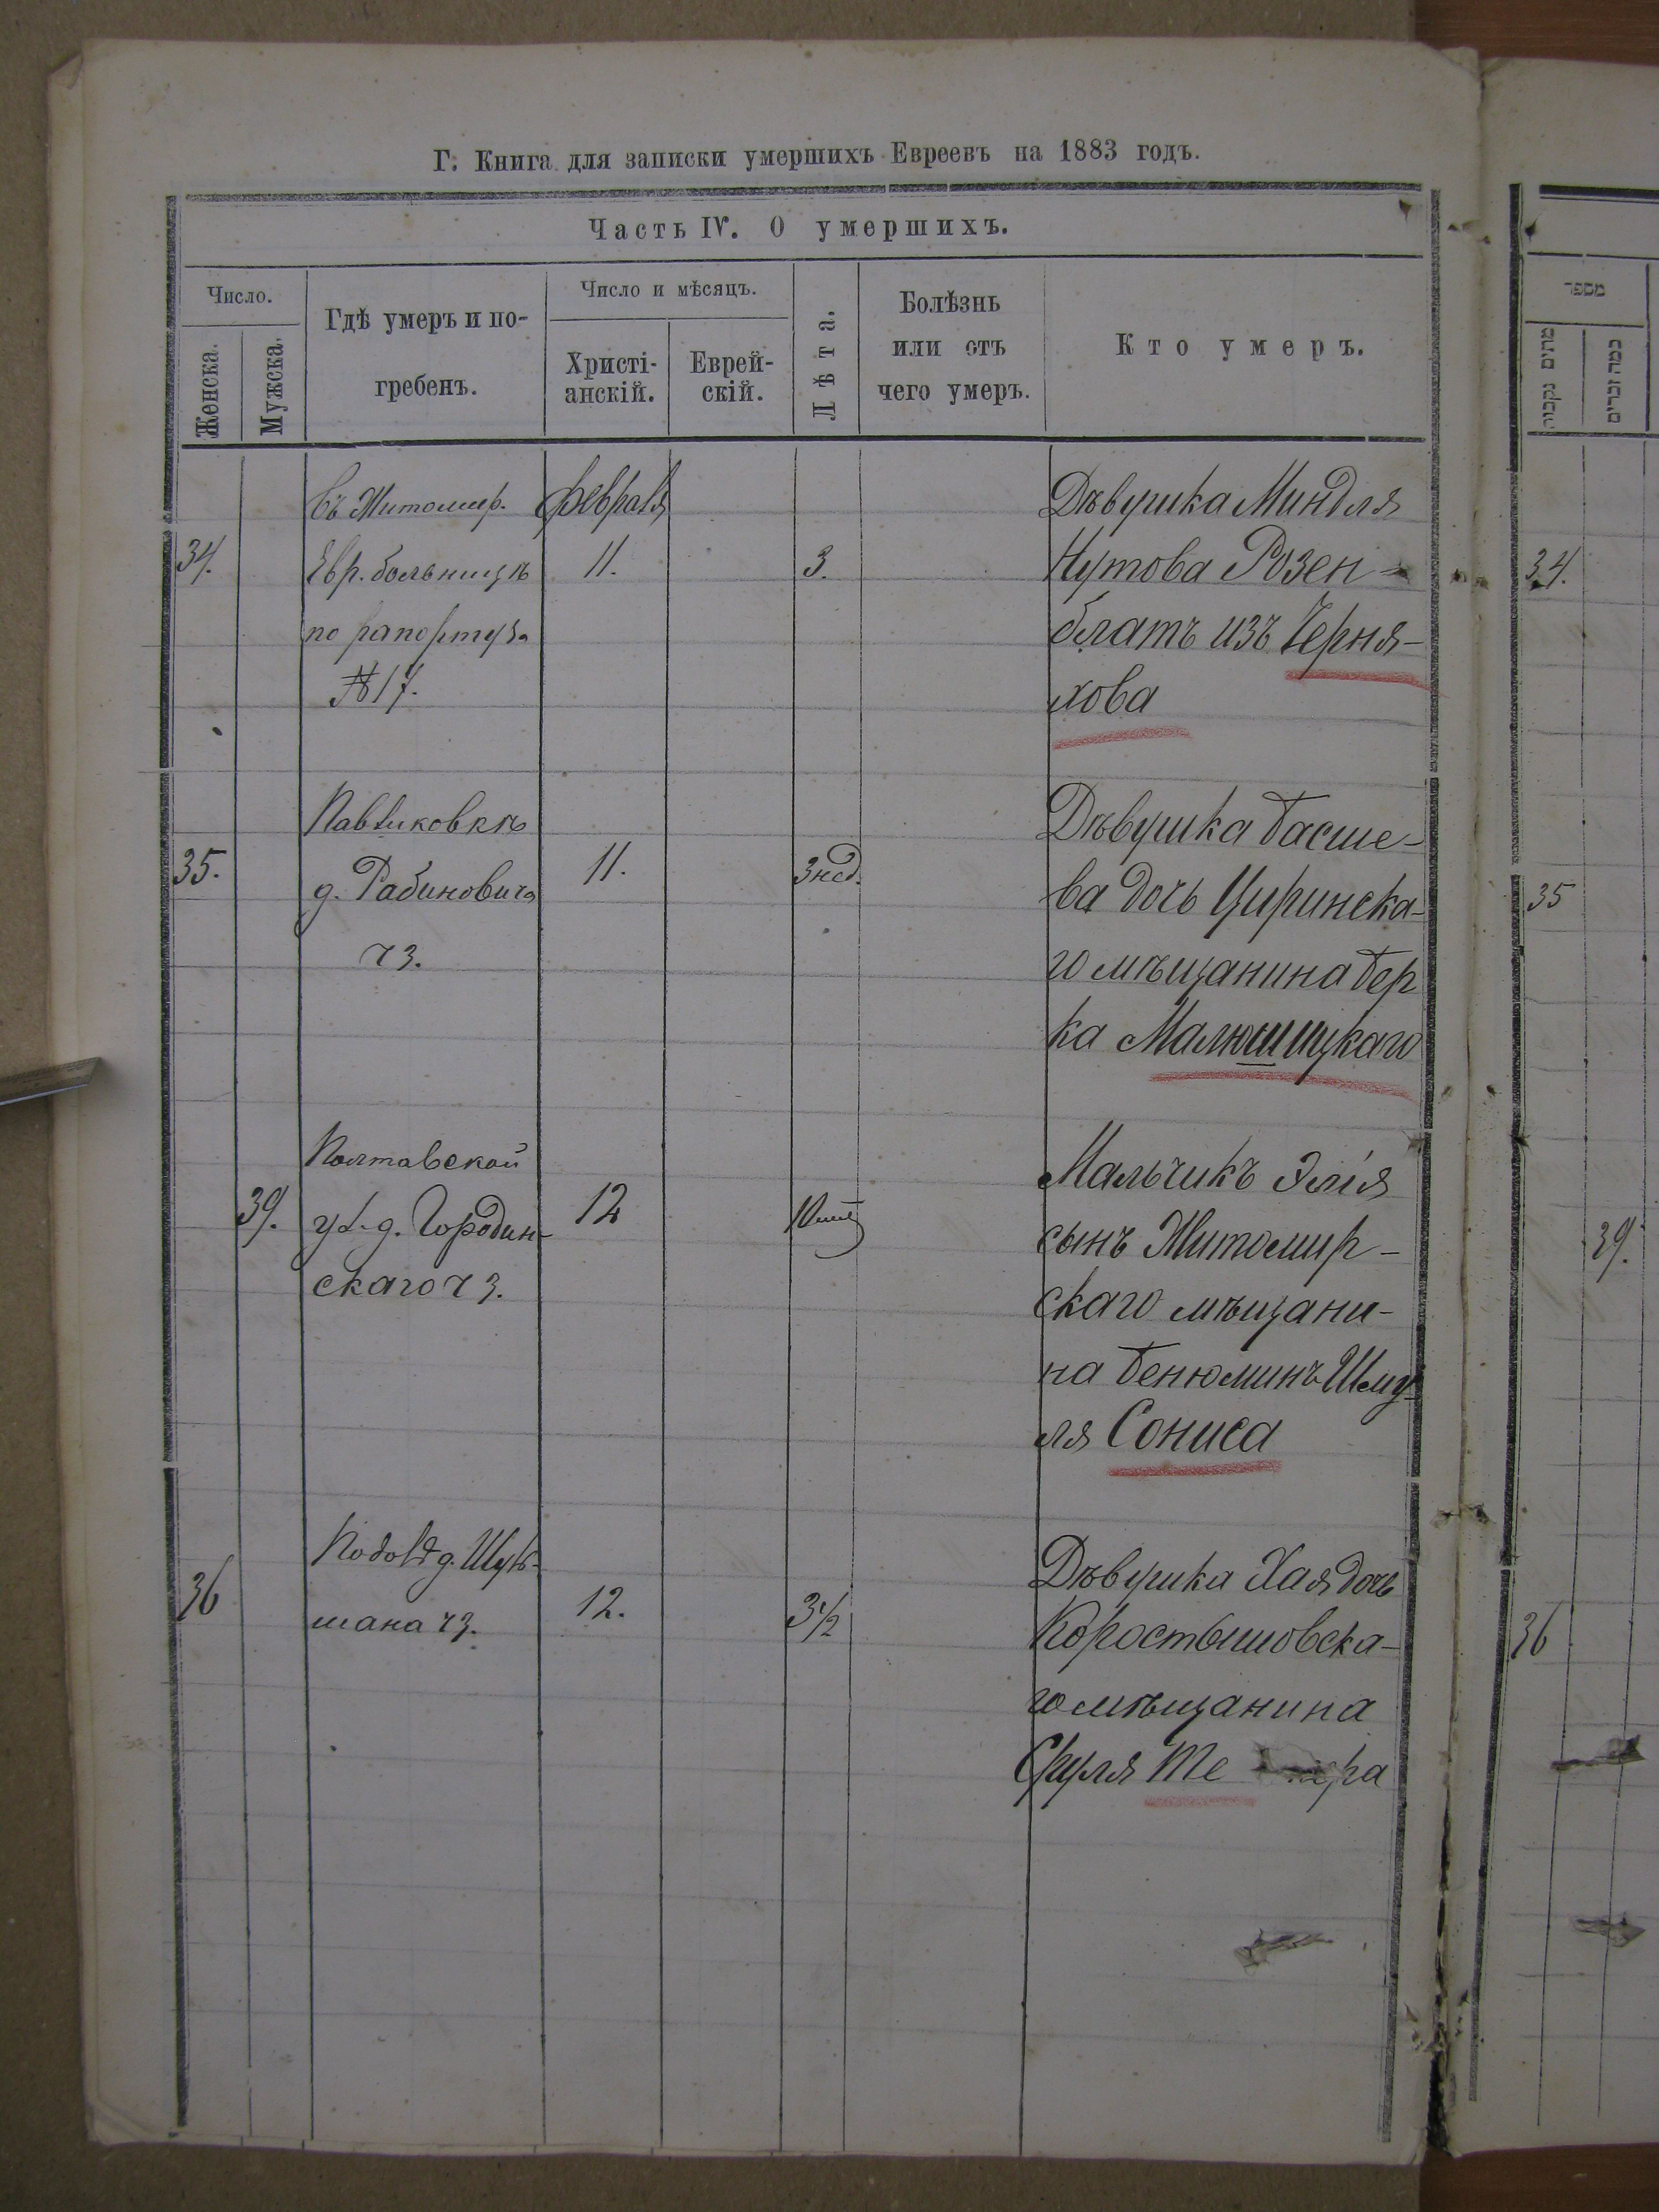 Г. Книга для записки умершихъ Евреевъ на 1883 годъ.
Часть IV. О умершихъ.
Число.
Женска.
Мужска.
Гдѣ умеръ и по-
гребенъ.
Число и мѣсяцъ.
Христі-
анскій.
Еврей-
скій.
Лѣта.
Болѣзнь
или отъ
чего умеръ.
Кто умеръ.
מספר
מתים נקבות
כמה זכרים
34.
въ Житомир.
Евр. больницѣ
по рапорту за
№ 17.
февраля
11.
3.
Дѣвушка Миндля
Нутова Розен-
блатъ изъ Черня-
хова
34.
35.
Павликовкѣ
д. Рабиновича
ч 3.
11.
3 нед.
Дѣвушка Басше-
ва дочь Циринска-
го мѣщанина Бер
ка Малюшицкаго
35
39.
Полтавской
ул. д. Городин-
скаго ч 3.
12
Мальчикъ Элія
сынъ Житомир-
скаго мѣщани-
на Бенюминъ Шму-
ля Сониса
39.
36
д. Шуй-
мана ч 3.
12.
3 1/2
Дѣвушка Хая дочь
Коростышовска-
го мѣщанина
Сруля
36